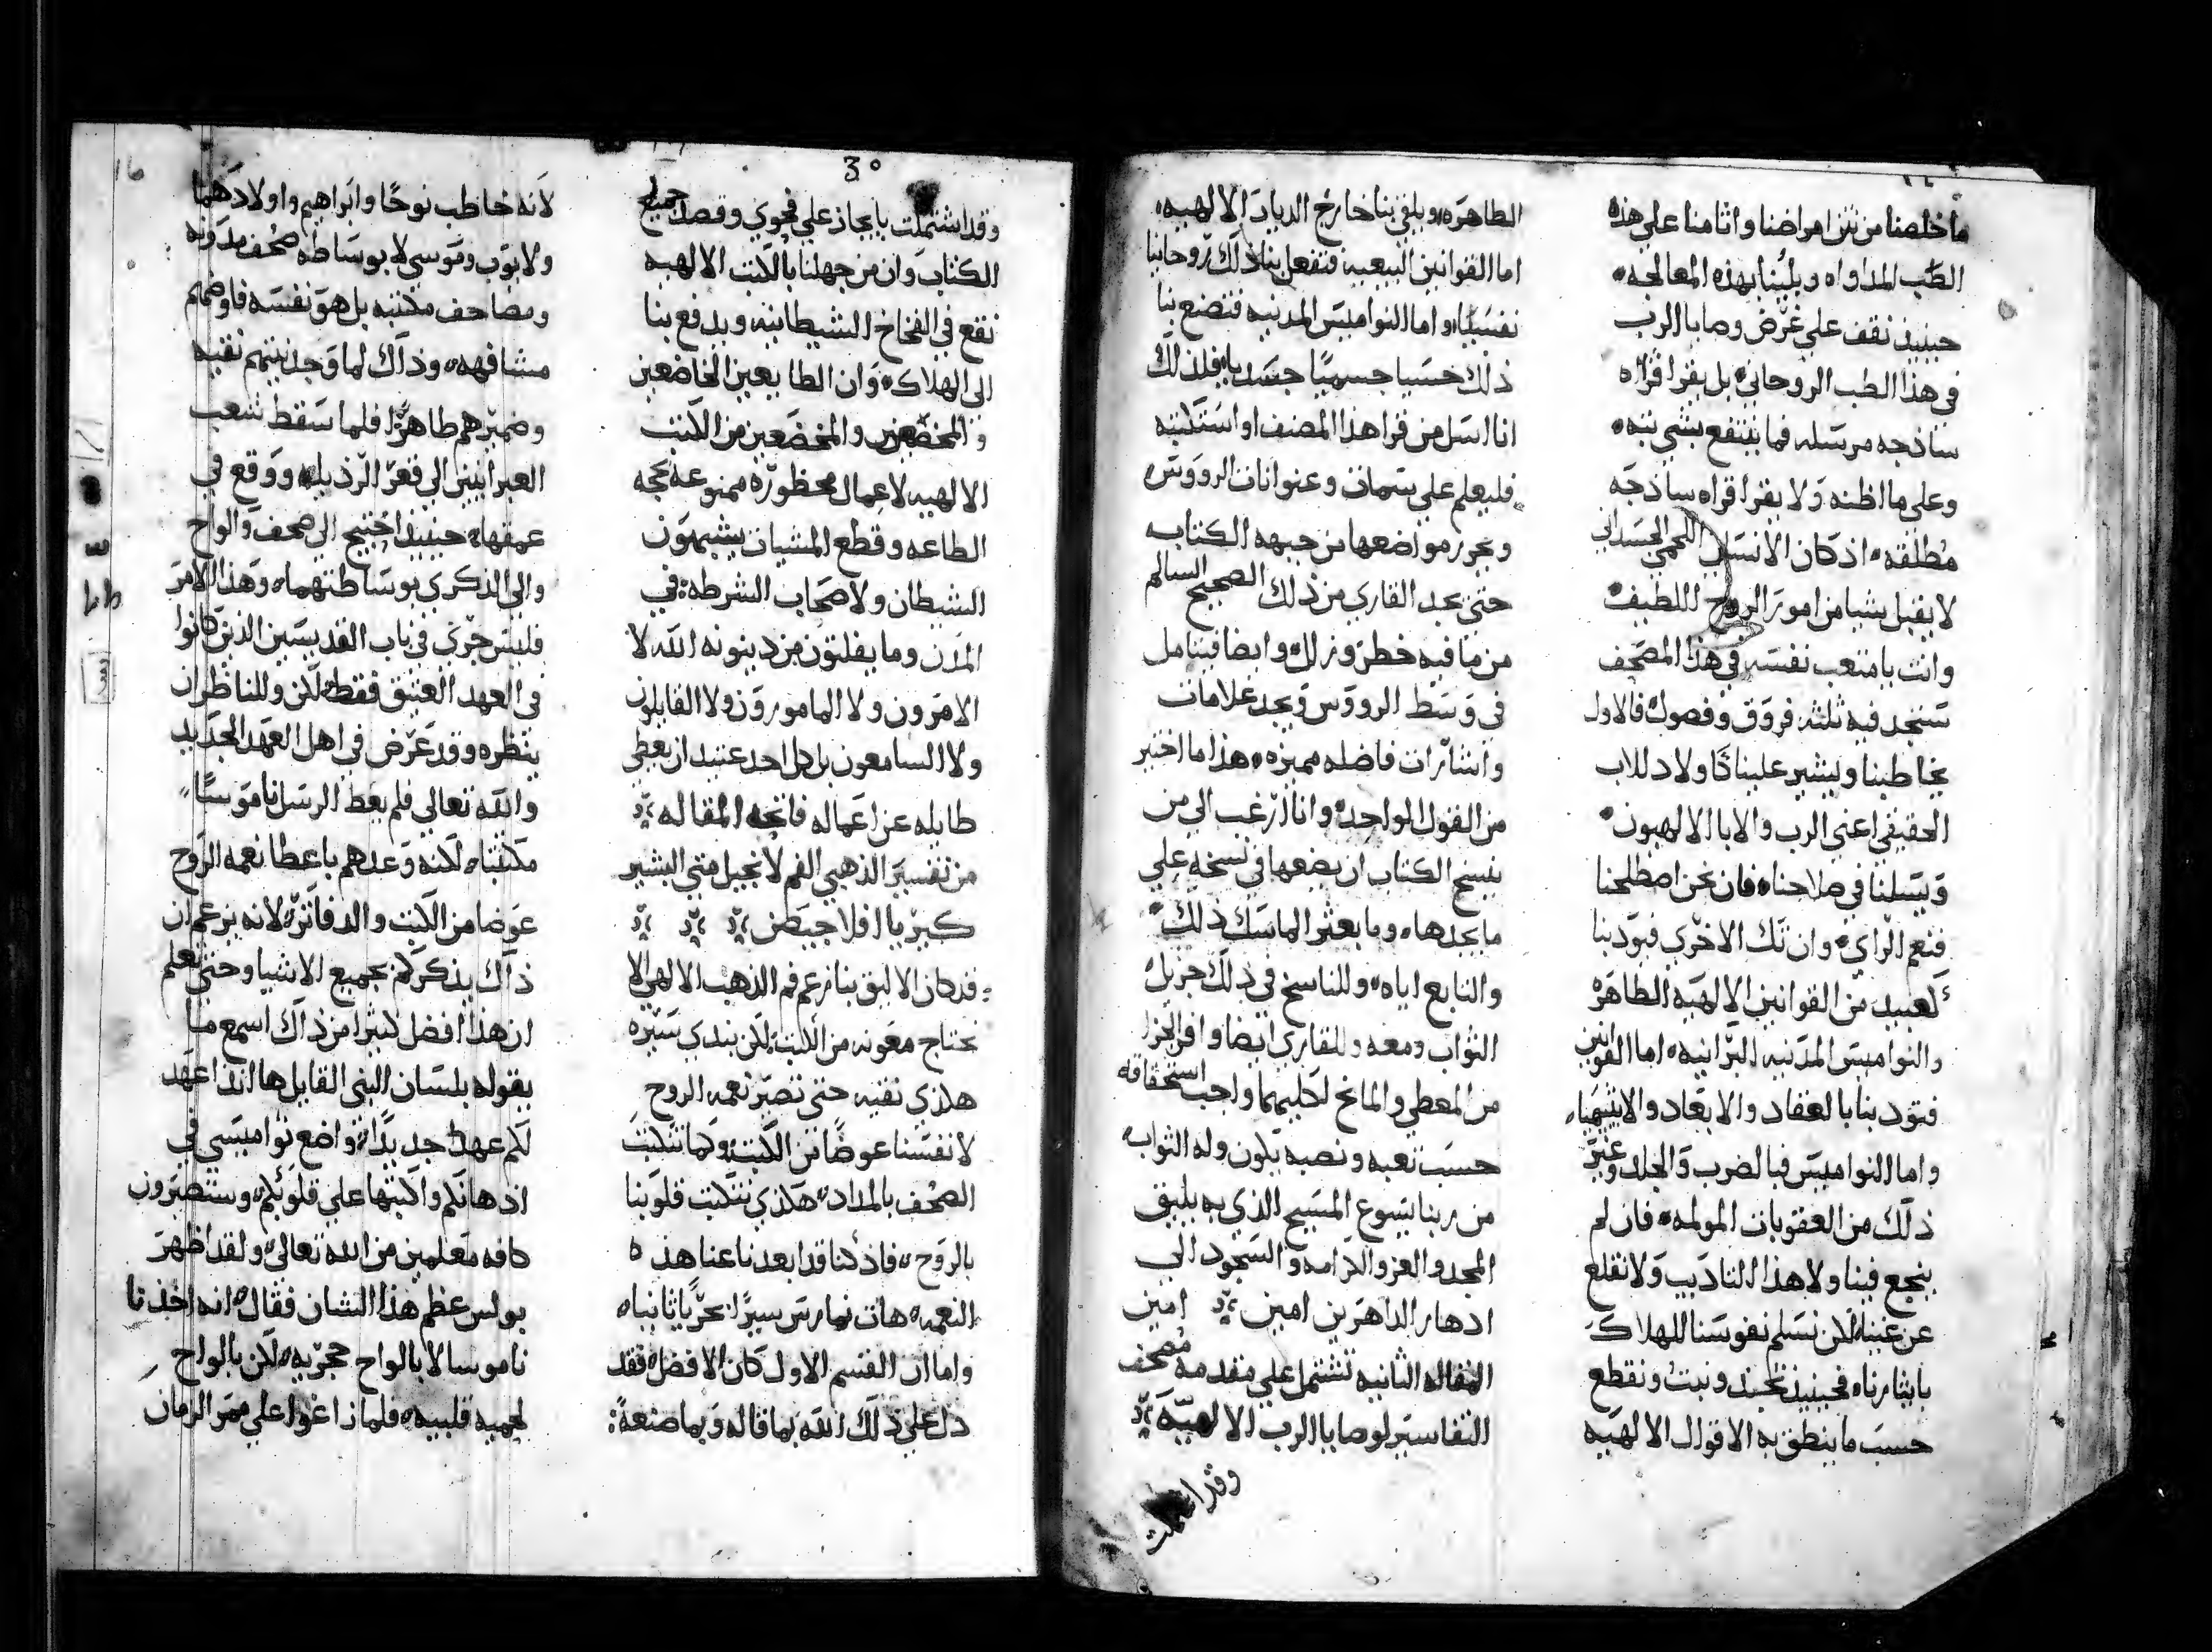 ما خلصنا من نتن امراضنا واثامنا علي هذه
الطب المداواه وبلينا بهذه المعالجه
حينيذ نقف علي غرض وصايا الرب
في هذا الطب الروحاني بل يقرا قراه
ساذجه مرسله فما ينتفع بشي بته
وعلي ما اظنه ولا يقرا قراه ساذجه
مطلقه اذ كان الانسان اللحمي الجسداني
لا يقبل شيا من امور الروح اللطيف
وانت يا متعب نفسه في هذا المصحف
ستجد فيه ثلثه فروق وفصول فالاول
يخاطبنا ويشير علينا كاولاد للاب
الحقيقي اعني الرب والابا الالهيون
ويسلنا في صلاحنا فان نحن اصطلحنا
فنعم الراي وان تك الاخري فيودبنا
كعبيد من القوانين الالهيه الطاهره
والنواميس المدنيه البرانيه اما القوانين
فتودبنا بالعقاد والابعاد والانتهيا
واما النواميس فبالضرب والجلد وغير
ذلك من العقوبات المولمه فان لم
ينجع فينا ولا هذا التاديب ولا نقلع
عن غينا لكن نسلم نفوسنا للهلاك
بايثارنا فحينيذ نحيد ونبت ونقطع
حسب ما ينطق به الاقوال الالهيه
الطاهره ويلقي بنا خارج الديار الالهيه
اما القوانين البيعيه فتفعل بنا ذلك روحانيا
نفسيا واما النواميس المدنيه فتصنع بنا
ذلك حسيا جسميا جسديا فلذلك
انا اسل من قرا هذا المصنف او استكتبه
فليعلم علي سمات وعنوانات الرووس
ويحرر مواضعها من جيهه الكتابه
حتي يجد القاري من ذلك الصحيح السالم
من ما فيه خطر وزلل وايضا فيتامل
في وسط الرووس ويجد علامات
واشارات فاضله مميزه هذا ما اختير
من القول الواحد وانا ارغب الي من
ينسخ الكتاب ان يضعها في نسخه علي
ما يجدها وما بعثر الماسك ذلك
والتابع اياه وللناسخ في ذلك جزيل
الثواب ومعه وللقاري ايضا وافر الجزا
من المعطي والمانح لكليهما واجب استحقاقه
حسب تعبه ونصبه يكون وله الثواب
من ربنا يسوع المسيح الذي به يليق
المجد والعز والكرامه والسجود الي
ادهار الداهرين امين امين
المقاله الثانيه تشتمل علي مقدمه مصحف
التفاسير لوصايا الرب الالهيه
وقد اشتملت
3০
وقد اشتملت بايجاز علي فحوي وقصد جميع
الكتاب وان من جهلنا بالكتب الالهيه
نقع في الفخاخ الشيطانيه ويدفع بنا
الي الهلاك وان الطايعين الخاضعين
والمخضعين من الكتب
الالهيه لاعمال محظوره ممنوعه بحجه
الطاعه وقطع المشيات يشبهون
الشيطان ولاصحاب الشرطه في
المدن وما يفلتون من دينونه الله لا
الامرون ولا المامورون ولا القايلون
ولا السامعون بل كل احد عتيد ان يعطي
طايله عن اعماله فاتحه المقاله
من تفسير الذهبي الفم لانجيل متي البشير
كيريا افلاجيصن
قد كان الاليق بنا زعم فم الذهب الالهي الا
نحتاج معونه من الكتب لكن نبدي سيره
هكذي نقيه حتي تصير نعمه الروح
لانفسنا عوضا من الكتب وكما تتكتب
الصحف بالمداد هكذي تتكتب قلوبنا
بالروح فاذ كنا قد ابعدنا عنا هذه
النعمه هات نمارس سيرا نحريا ثانيا
واما ان القسم الاول كان الافضل فقد
دل علي ذلك الله بما قاله وبما صنعه
16
لانه خاطب نوحا وابراهيم واولادهما
ولايوب وموسي لا بوساطه صحف مدونه
ومصاحف مكتبه بل هو نفسه فاوضهم
مشافهه وذاك لما وجد نيتهم نقيه
وضميرهم طاهرا فلما سقط شعب
العبرانيين الي قعر الرذيله ووقع في
عمقها حينيذ احتيج الي صحف والواح
والي الذكري بوساطتهما وهذا الامر
فليس جري في باب القديسين الذين كانوا
في العهد العتيق فقط لكن وللناظر ان
ينظره وقد عرض في اهل العهد الجديد
والله تعالي فلم يعط الرسل ناموسا
مكتبا لكنه وعدهم باعطا نعمه الروح
عوضا من الكتب والدفاتر لانه يزعم ان
ذاك يذكركم بجميع الاشيا وحتي تعلم
ان هذا افضل كثيرا من ذاك اسمع ما
يقوله بلسان النبي القايل ها انذا اعهد
لكم عهدا جديدا واضع نواميسي في
اذهانكم واكتبها علي قلوبكم وستصيرون
كافه متعلمين من الله تعالي ولقد اظهر
بولس عظم هذا الشان فقال انه اخذنا
ناموسا لا بالواح حجريه لكن بالواح
لحميه قلبيه فلما زاغوا علي ممر الزمان